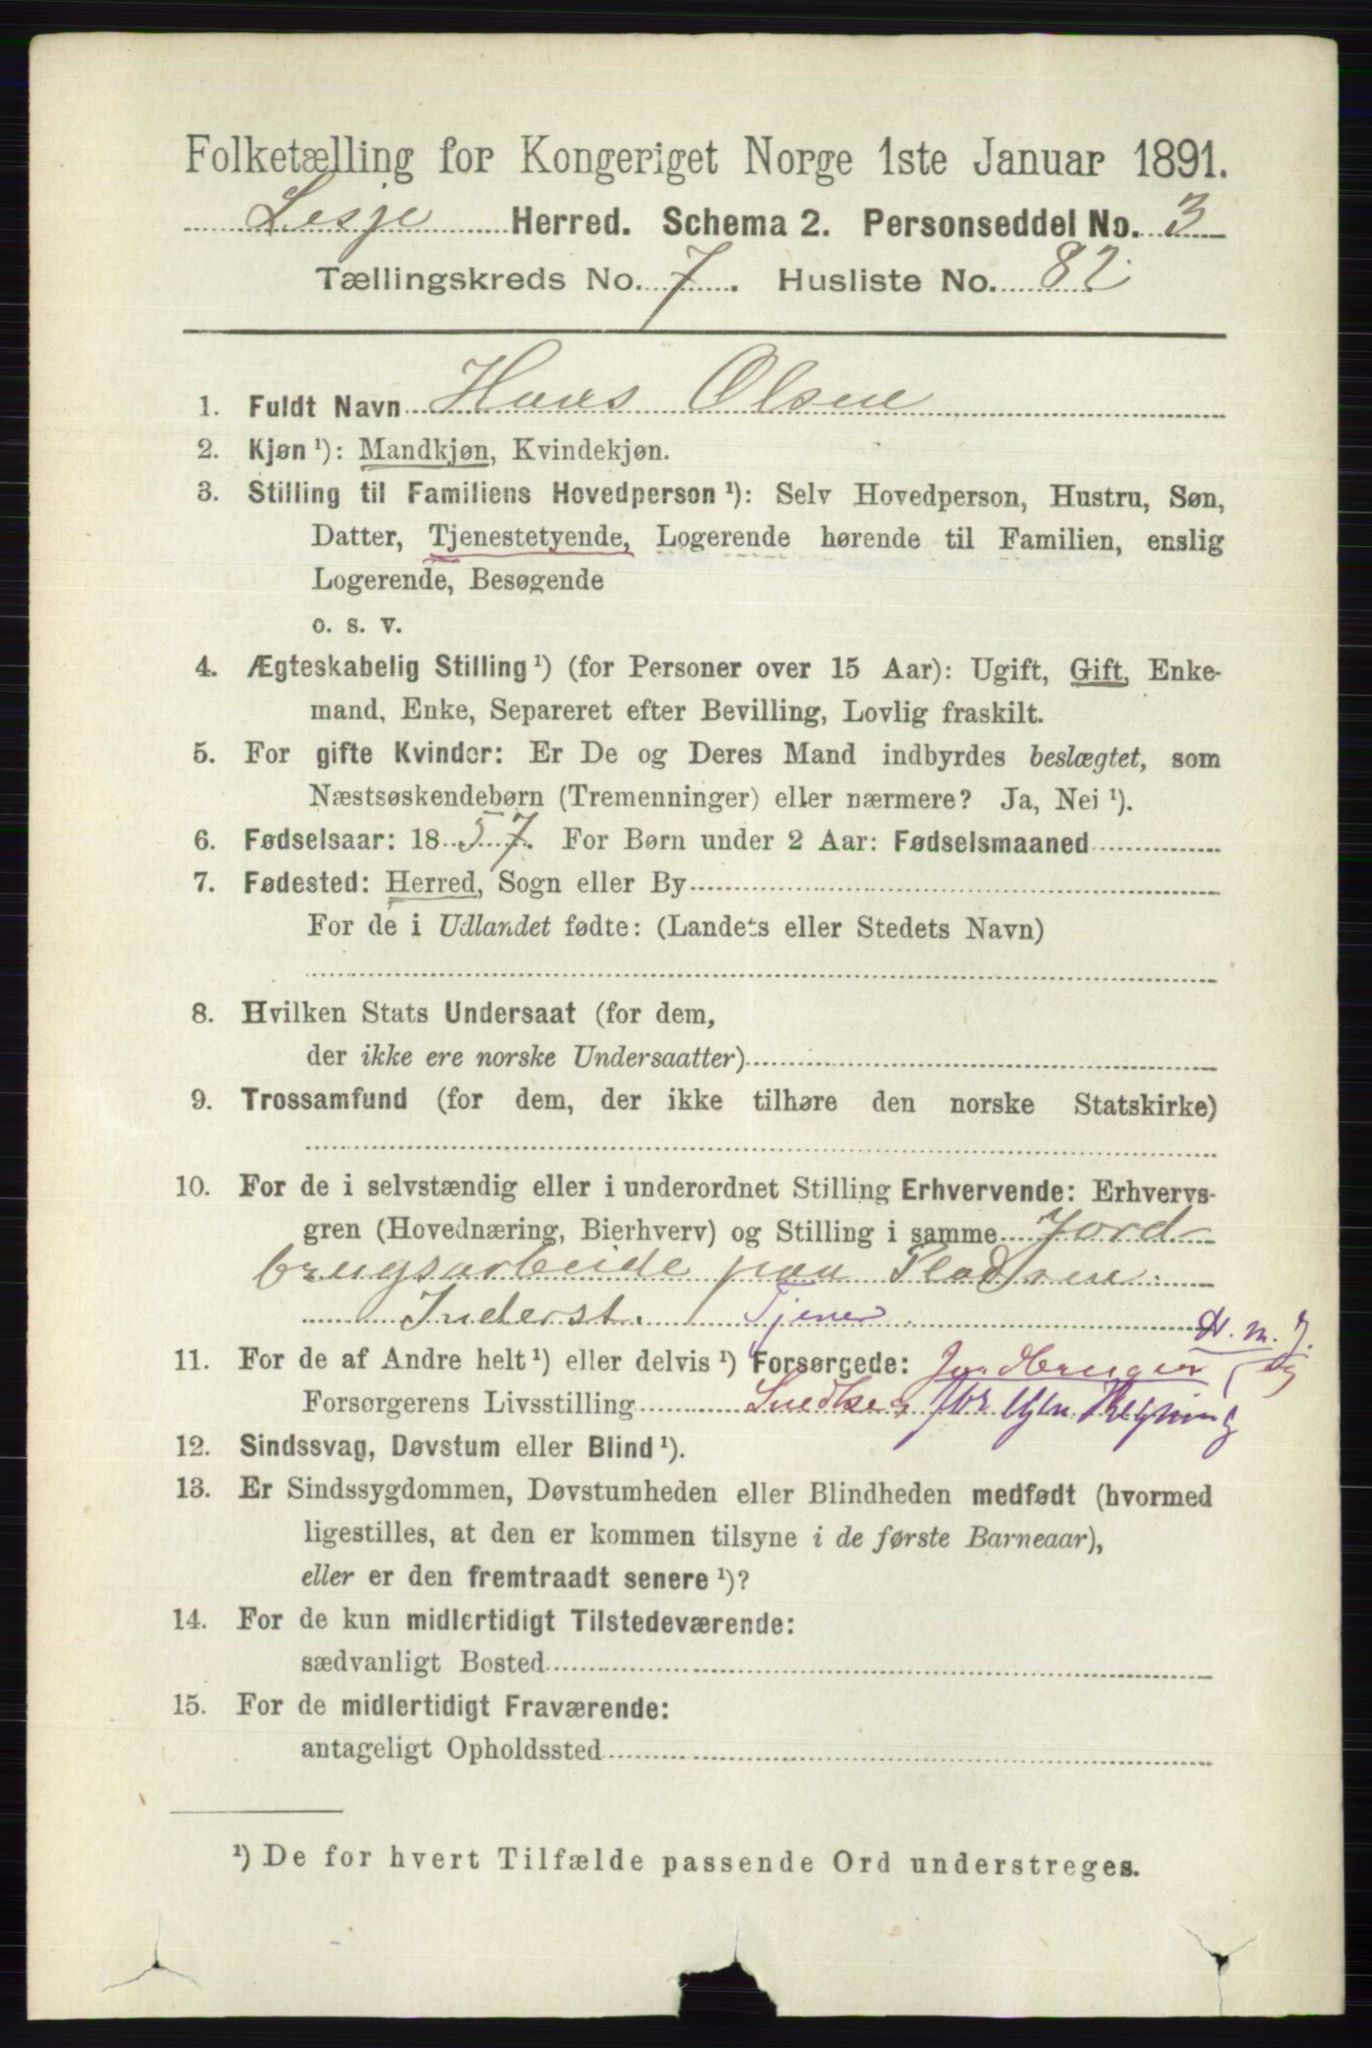 Folketælling for Kongeriget Norge 1ste Januar 1891.
Lesje Herred. Schema 2. Personseddel No. 3
Tællingskreds No. 7. Husliste No. 82
1. Fuldt Navn Hans Olsen
2. Kjøn ¹): Mandkjøn, Kvindekjøn.
3. Stilling til Familiens Hovedperson ¹): Selv Hovedperson, Hustru, Søn,
Datter, Tjenestetyende, Logerende hørende til Familien, enslig
Logerende, Besøgende
o. s. v.
4. Ægteskabelig Stilling ¹) (for Personer over 15 Aar): Ugift, Gift, Enke-
mand, Enke, Separeret efter Bevilling, Lovlig fraskilt.
5. For gifte Kvinder: Er De og Deres Mand indbyrdes beslægtet, som
Næstsøskendebørn (Tremenninger) eller nærmere? Ja, Nei ¹).
6. Fødselsaar: 1857. For Børn under 2 Aar: Fødselsmaaned
7. Fødested: Herred, Sogn eller By
For de i Udlandet fødte: (Landets eller Stedets Navn)
8. Hvilken Stats Undersaat (for dem,
der ikke ere norske Undersaatter)
9. Trossamfund (for dem, der ikke tilhøre den norske Statskirke)
10. For de i selvstændig eller i underordnet Stilling Erhvervende: Erhvervs-
gren (Hovednæring, Bierhverv) og Stilling i samme Jord
brugsarbeide paa Pladsen.
Inderst. Tjener
11. For de af Andre helt ¹) eller delvis ¹) Forsørgede: Jordbruger og
Forsørgerens Livsstilling Snedker for egen Regning
12. Sindssvag, Døvstum eller Blind ¹).
13. Er Sindssygdommen, Døvstumheden eller Blindheden medfødt (hvormed
ligestilles, at den er kommen tilsyne i de første Barneaar),
eller er den fremtraadt senere ¹)?
14. For de kun midlertidigt Tilstedeværende:
sædvanligt Bosted
15. For de midlertidigt Fraværende:
antageligt Opholdssted
¹) De for hvert Tilfælde passende Ord understreges.